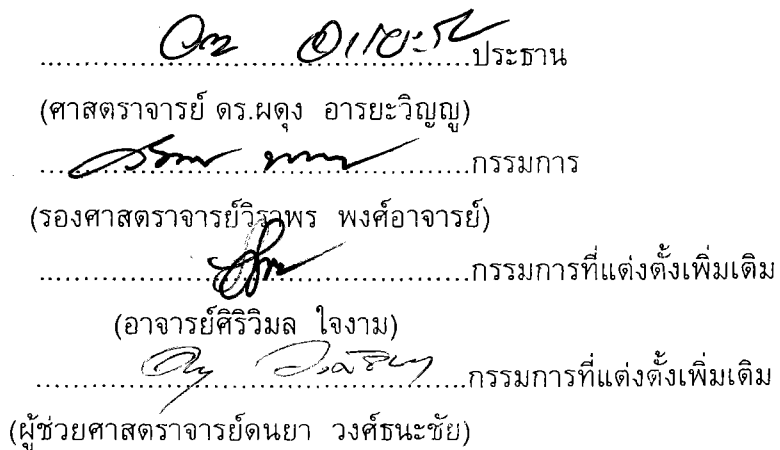 ........................................ประธาน
(ศาสตราจารย์ ดร.ผดุง อารยะวิญญู)
........................................กรรมการ
(รองศาสตราจารย์วิราพร พงศ์อาจารย์)
........................................กรรมการที่แต่งตั้งเพิ่มเติม
(อาจารย์ศิริวิมล ใจงาม)
........................................กรรมการที่แต่งตั้งเพิ่มเติม
(ผู้ช่วยศาสตราจารย์ดนยา วงศ์ธนะชัย)